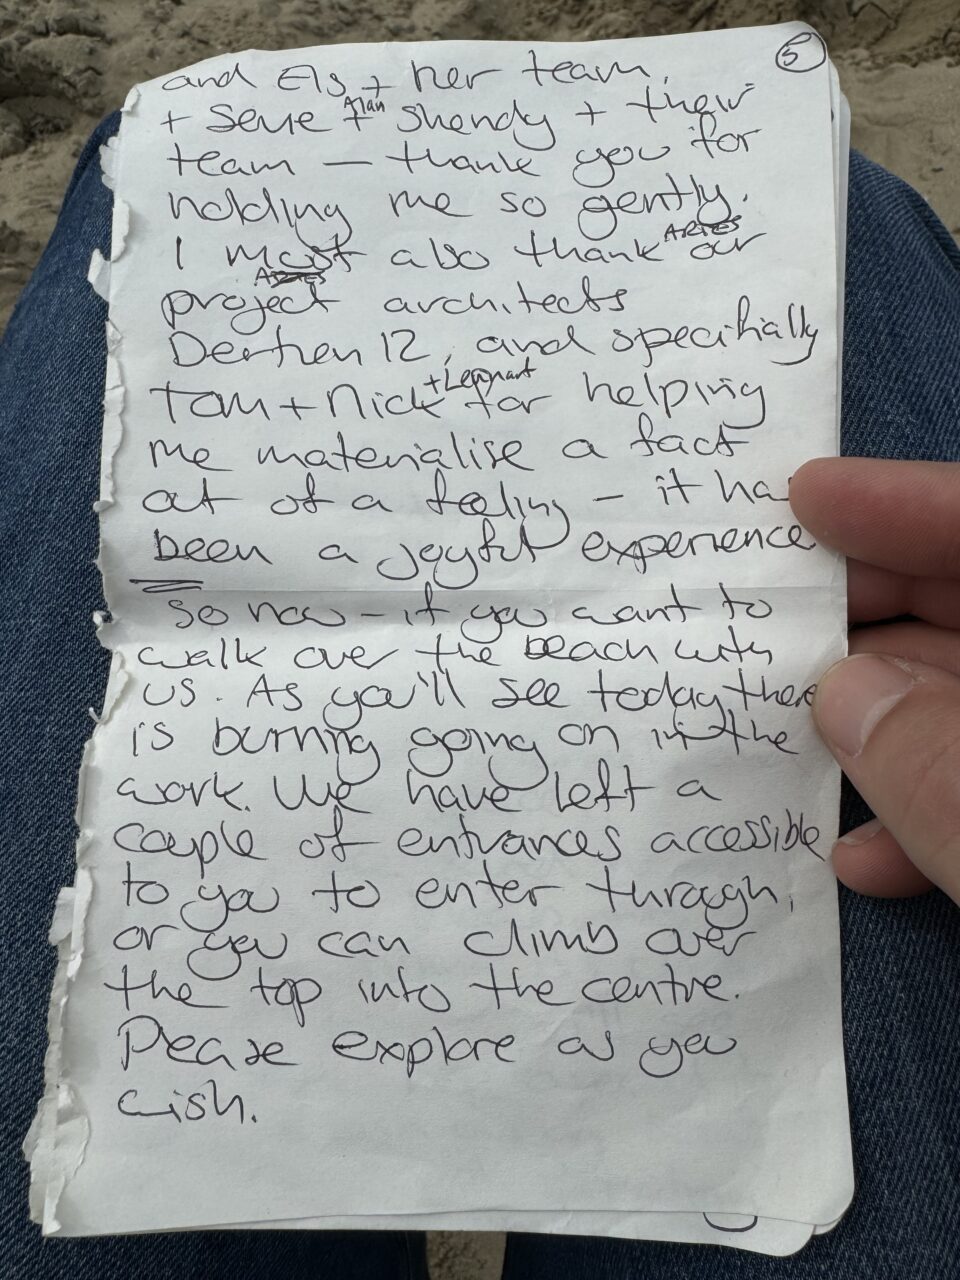 5
and Els + her team,
+ Seve + Alan Shendy + their
team — thank you for
holding me so gently.
I must also thank our
project architects
Dertien 12, and specifially
Tom + Nick + Lennart for helping
me materialise a fact
out of a feeling – it has
been a joyful experience
So now – if you want to
walk over the beach with
us. As you'll see today there
is burning going on in the
work. We have left a
couple of entrances accessible
to you to enter through,
or you can climb over
the top into the centre.
Please explore as you
wish.